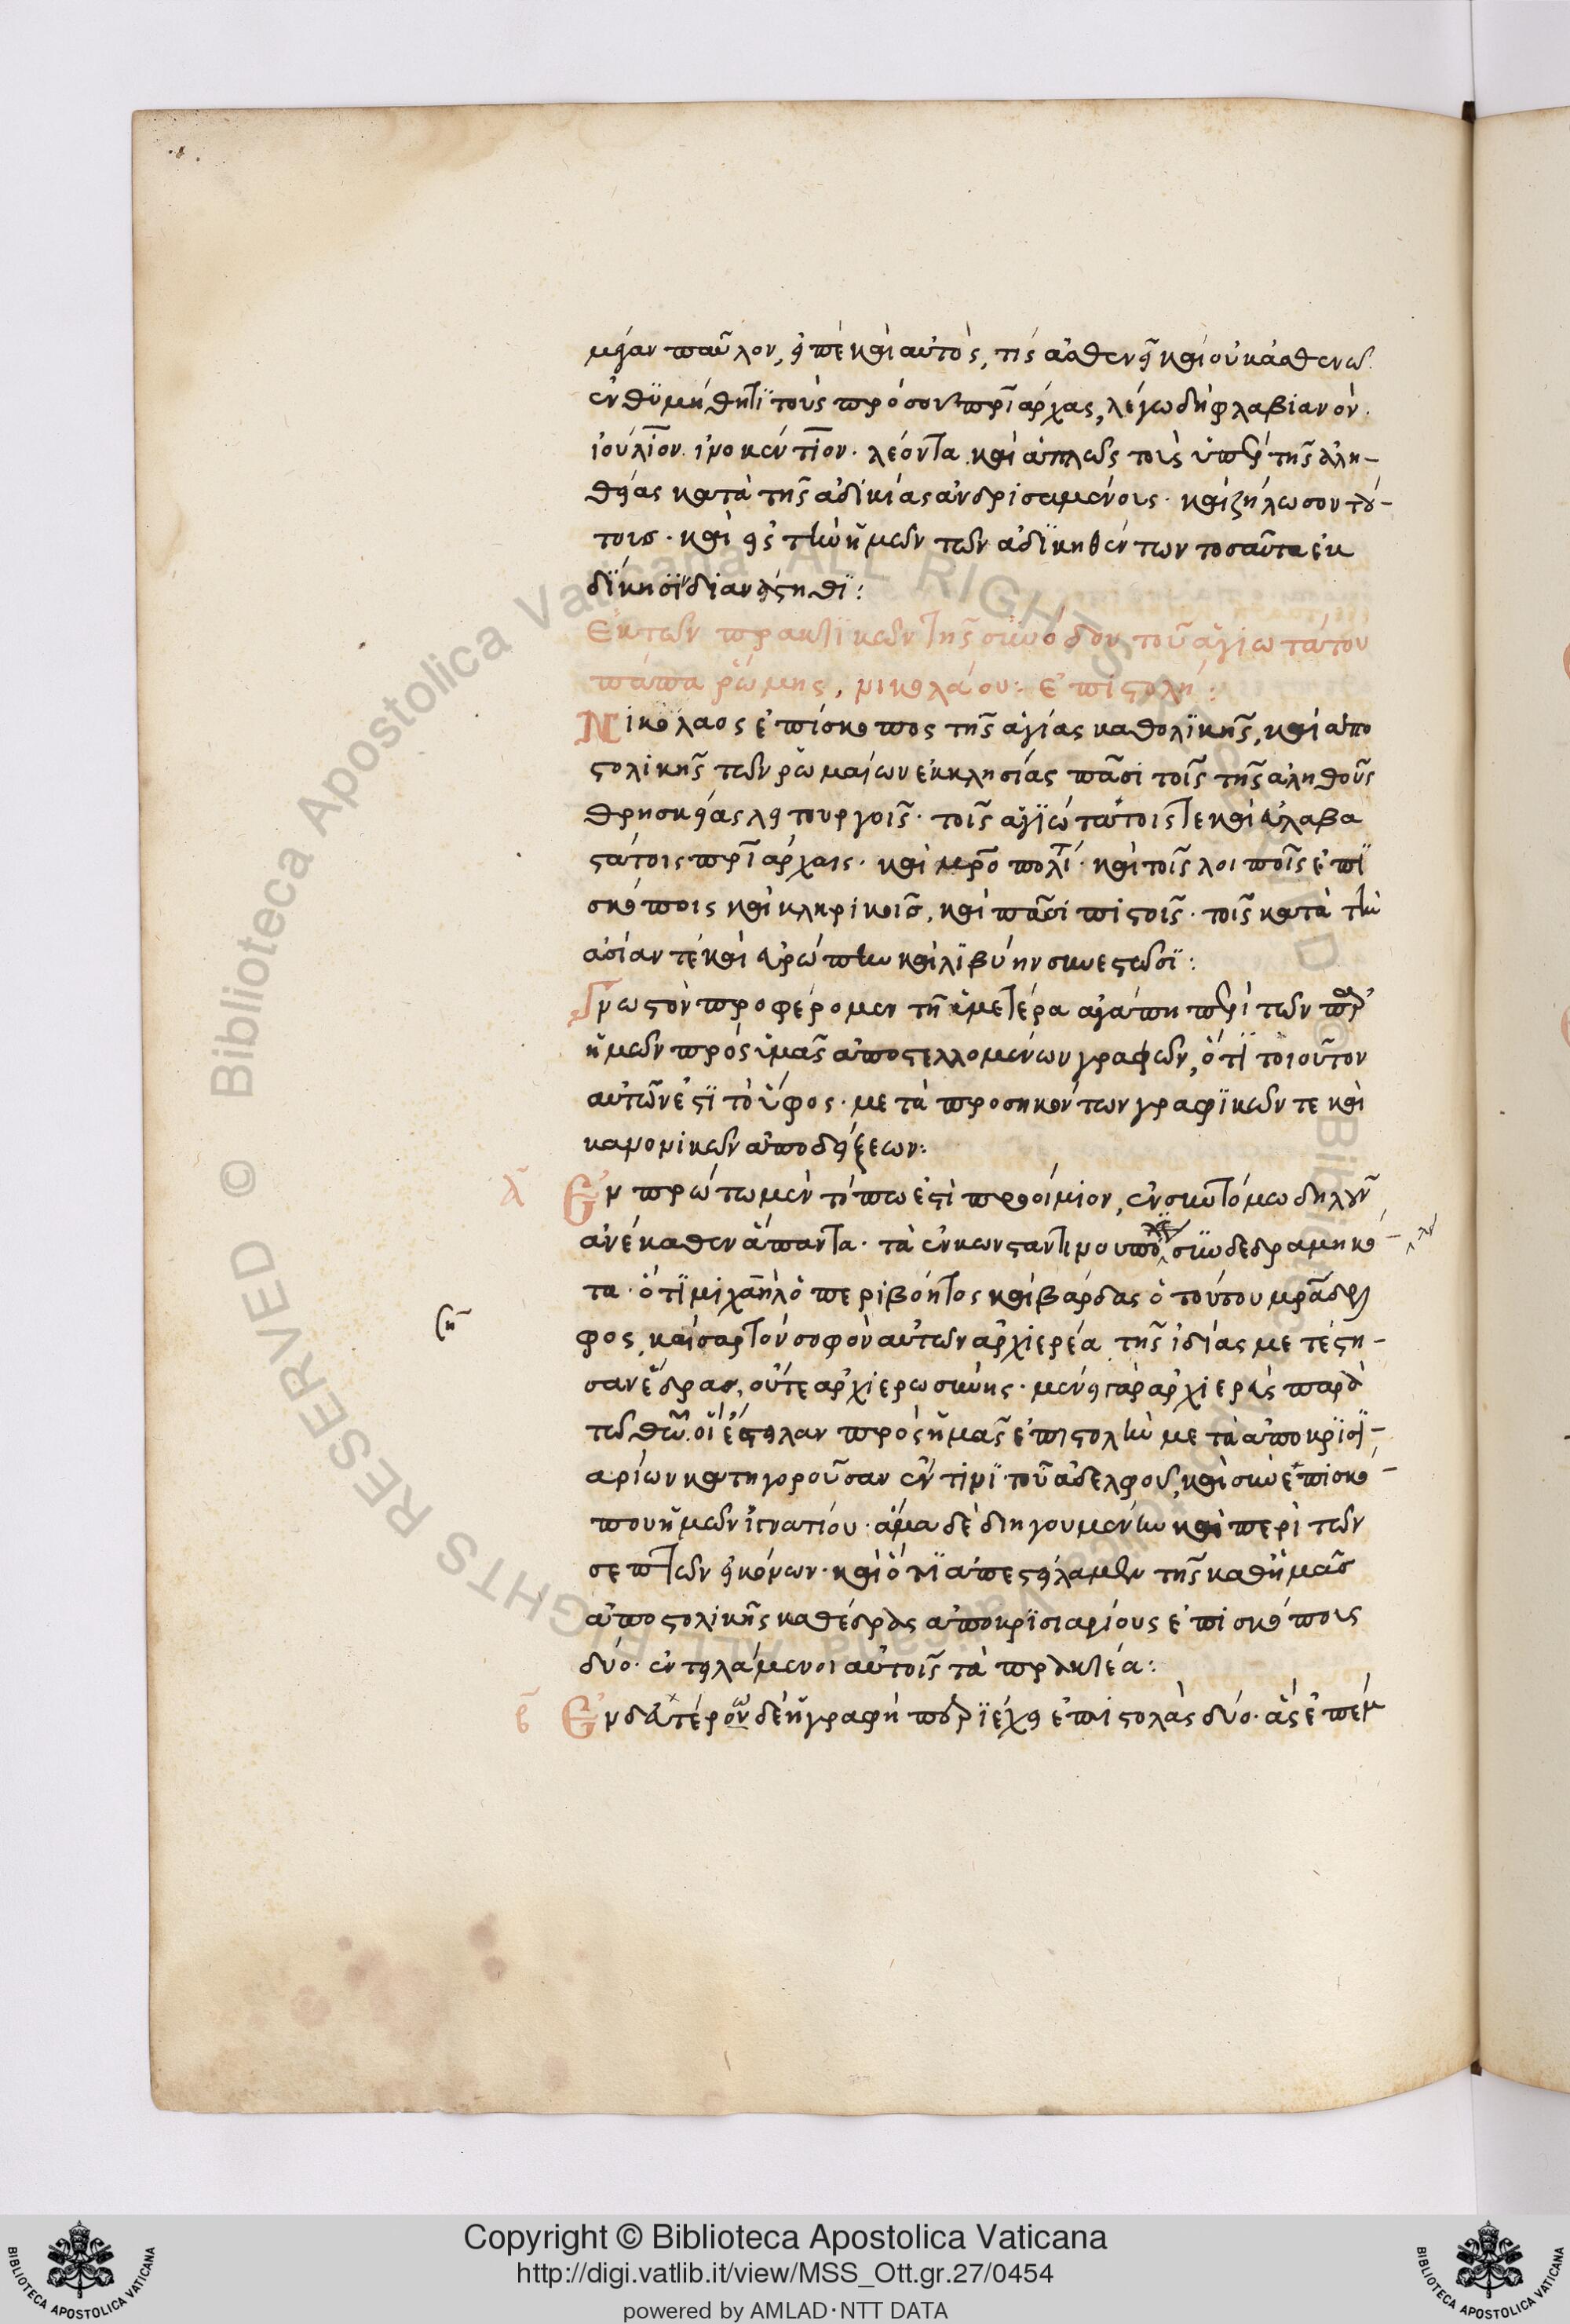 μείαν παῦλον, εἰπὲ καὶ αὐτὸς, τίς ἀσθενεῖ καὶ οὐκ ἀσθενῶ.
ἐνθυμήθητι τοὺς πρὸ σου πρϊάρχας, λέγω δὴ φλαβιανόν.
ἰούλιον. ἰνοκέντιον. λέοντα. καὶ ἁπλῶς τοὺς ὑπὲρ τῆς ἀλη-
θείας κατὰ τῆς ἀδικίας ἀνδρισαμένους. καὶ ζήλωσον τού-
τους. καὶ εἰς τὴν ἡμῶν τῶν ἀδικηθέντων τοσαῦτα ἐκ
δίκησιν διανάστηθι:
Ἐκ τῶν πρακτικῶν τῆς συνόδου τοῦ ἁγιωτάτου
πάπα ῥώμης, νικολάου: ἐπιστολή:
Νικόλαος ἐπίσκοπος τῆς ἁγίας καθολικῆς, καὶ ἀπο
στολικῆς τῶν ῥωμαίων ἐκκλησίας πᾶσι τοῖς τῆς ἀληθοῦς
θρησκείας λειτουργοῖς. τοῖς ἁγιωτάτοις τε καὶ εὐλαβε
στάτοις πρϊάρχαις. καὶ μροπολΐ. καὶ τοῖς λοιποῖς ἐπι
σκόποις καὶ κληρικοῖς, καὶ πᾶσι πιστοῖς. τοῖς κατὰ τὴν
ἀσίαν τὲ καὶ εὐρώπην καὶ λιβύην συνεστῶσι:
Γνωστὸν προφέρομεν τῇ ὑμετέρα ἀγάπη περὶ τῶν παρ'
ἡμῶν πρὸς ὑμᾶς ἀποστελλομένων γραφῶν, ὅτι τοιοῦτον
αὐτῶν ἐστι τὸ ὕφος. μετὰ προσηκόντων γραφικῶν τε καὶ
κανονικῶν ἀποδείξεων:
α Ἐν πρώτω μὲν τύπω ἐστὶ προοίμιον, ἐν συντόμω δηλοῦν
ἀνέκαθεν ἅπαντα. τὰ ἐν κωνσταντινουπόλει συνδεδραμηκό-
τα. ὅτι μιχαὴλ ὁ περιβόητος καὶ βάρδας ὁ τούτου μρἀδελ
φος, καίσαρ τὸν σοφὸν αὐτῶν ἀρχιερέα τῆς ἰδίας μετέστη-
σαν ἕδρας, οὔτε ἀρχιερωσύνης. μένει γὰρ ἀρχιερεὺς παρὰ
τῷ θῶ. οἳ ἔστειλαν πρὸς ἡμᾶς ἐπιστολὴν μετὰ ἀποκρισι-
αρίων κατηγοροῦσαν ἔν τινι τοῦ ἀδελφοῦ, καὶ συνεπισκό-
που ἡμῶν ἰγνατίου. ἅμα δὲ διηγουμένην καὶ περὶ τῶν
σεπτῶν εἰκόνων. καὶ ὅτι ἀπεστείλαμεν τῆς καθ' ἡμᾶς
ἀποστολικῆς καθέδρας ἀποκρισιαρίους ἐπισκόπους
δύο. ἐντειλάμενοι αὐτοῖς τὰ πρακτέα:
β Ἐν δευτέρου δὲ ἡ γραφὴ περιέχει ἐπιστολὰς δύο. ἃς ἐπέμ
Copyright © Biblioteca Apostolica Vaticana
http://digi.vatlib.it/view/MSS_Ott.gr.27/0454
powered by AMLAD·NTT DATA